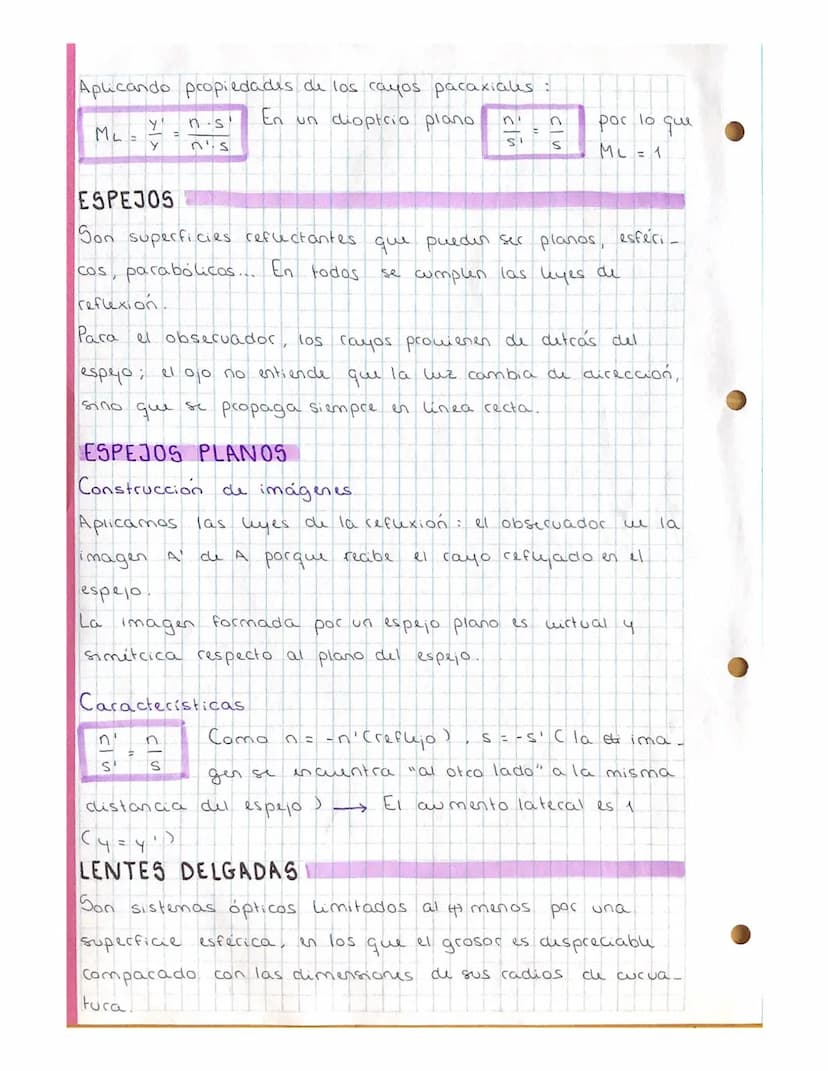 Aplicando propiedades de los rayos paraxiales :
ML = y'/y = n·s'/n'·s En un dioptrio plano n'/s' = n/s por lo que
ML = 1
ESPEJOS
Son superficies reflectantes que pueden ser planos, esféri-
cos, parabólicos... En todos se cumplen las leyes de
reflexión.
Para el observador, los rayos provienen de detrás del
espejo; el ojo no entiende que la luz cambia de dirección,
sino que se propaga siempre en línea recta.
ESPEJOS PLANOS
Construcción de imágenes
Aplicamos las leyes de la reflexión : el observador ve la
imagen A' de A porque recibe el rayo reflejado en el
espejo.
La imagen formada por un espejo plano es virtual y
simétrica respecto al plano del espejo.
Características
n'/s' = n/s Como n = -n' (reflejo), s = -s' (la ima-
gen se encuentra "al otro lado" a la misma
distancia del espejo) → El aumento lateral es 1
(y = y')
LENTES DELGADAS
Son sistemas ópticos limitados al menos por una
superficie esférica, en los que el grosor es despreciable
comparado con las dimensiones de sus radios de curva-
tura.